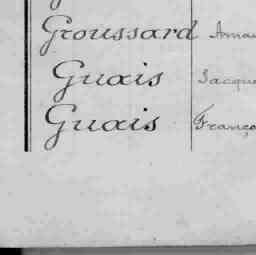 Groussard Aman
Guais Jacque
Guais Franço